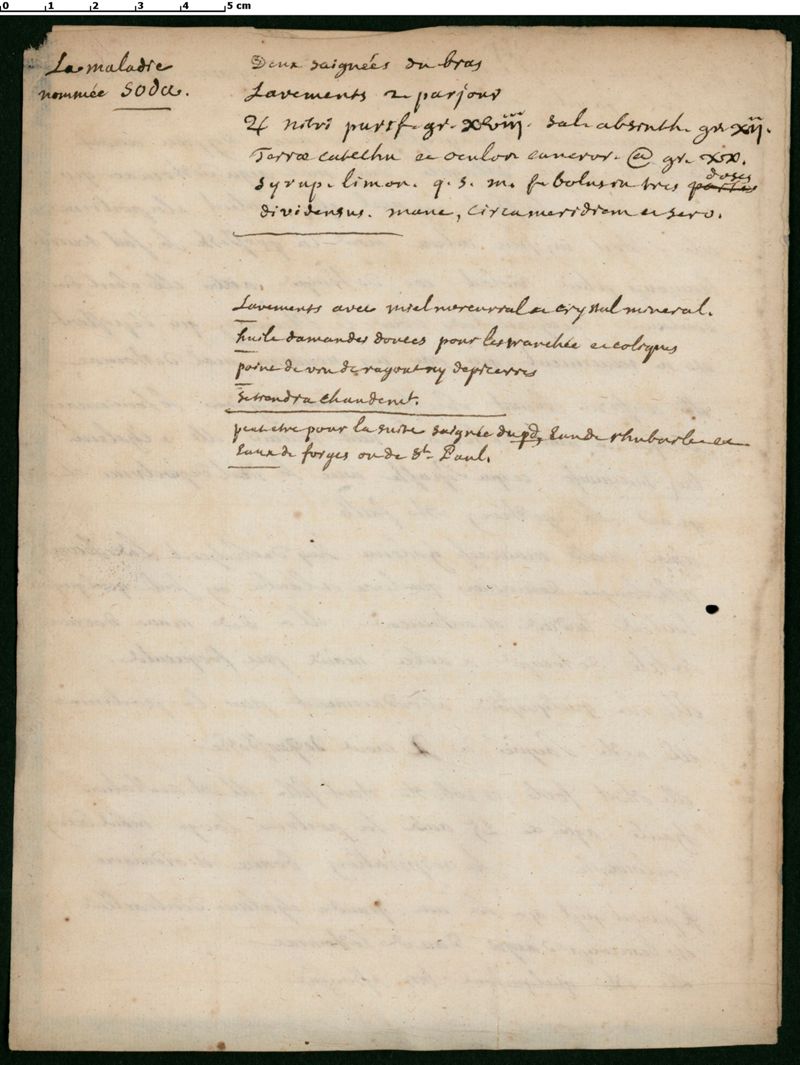 La maladie
nommée soda.
Deux saignées du bras
Lavements 2 par jour
♃ nitri purif. gr. xlviij. sal. absinth. gr. xij.
Terræ catechu et oculor cancror. @ gr. xx.
doses
Syrup. limon. q. s. m. f. bolus in tres partes
dividensus. mane, circa meridiem et sero.
Lavements avec miel mercurial et crystal mineral.
huile damandes douces pour les tranchée et coliques
point de vin de ragout ny depiceries
se tiendra chaudemt.
peut etre pour la suite saignée du pd, Eau de rhubarbe et
Eaux de forges ou de St. Paul.